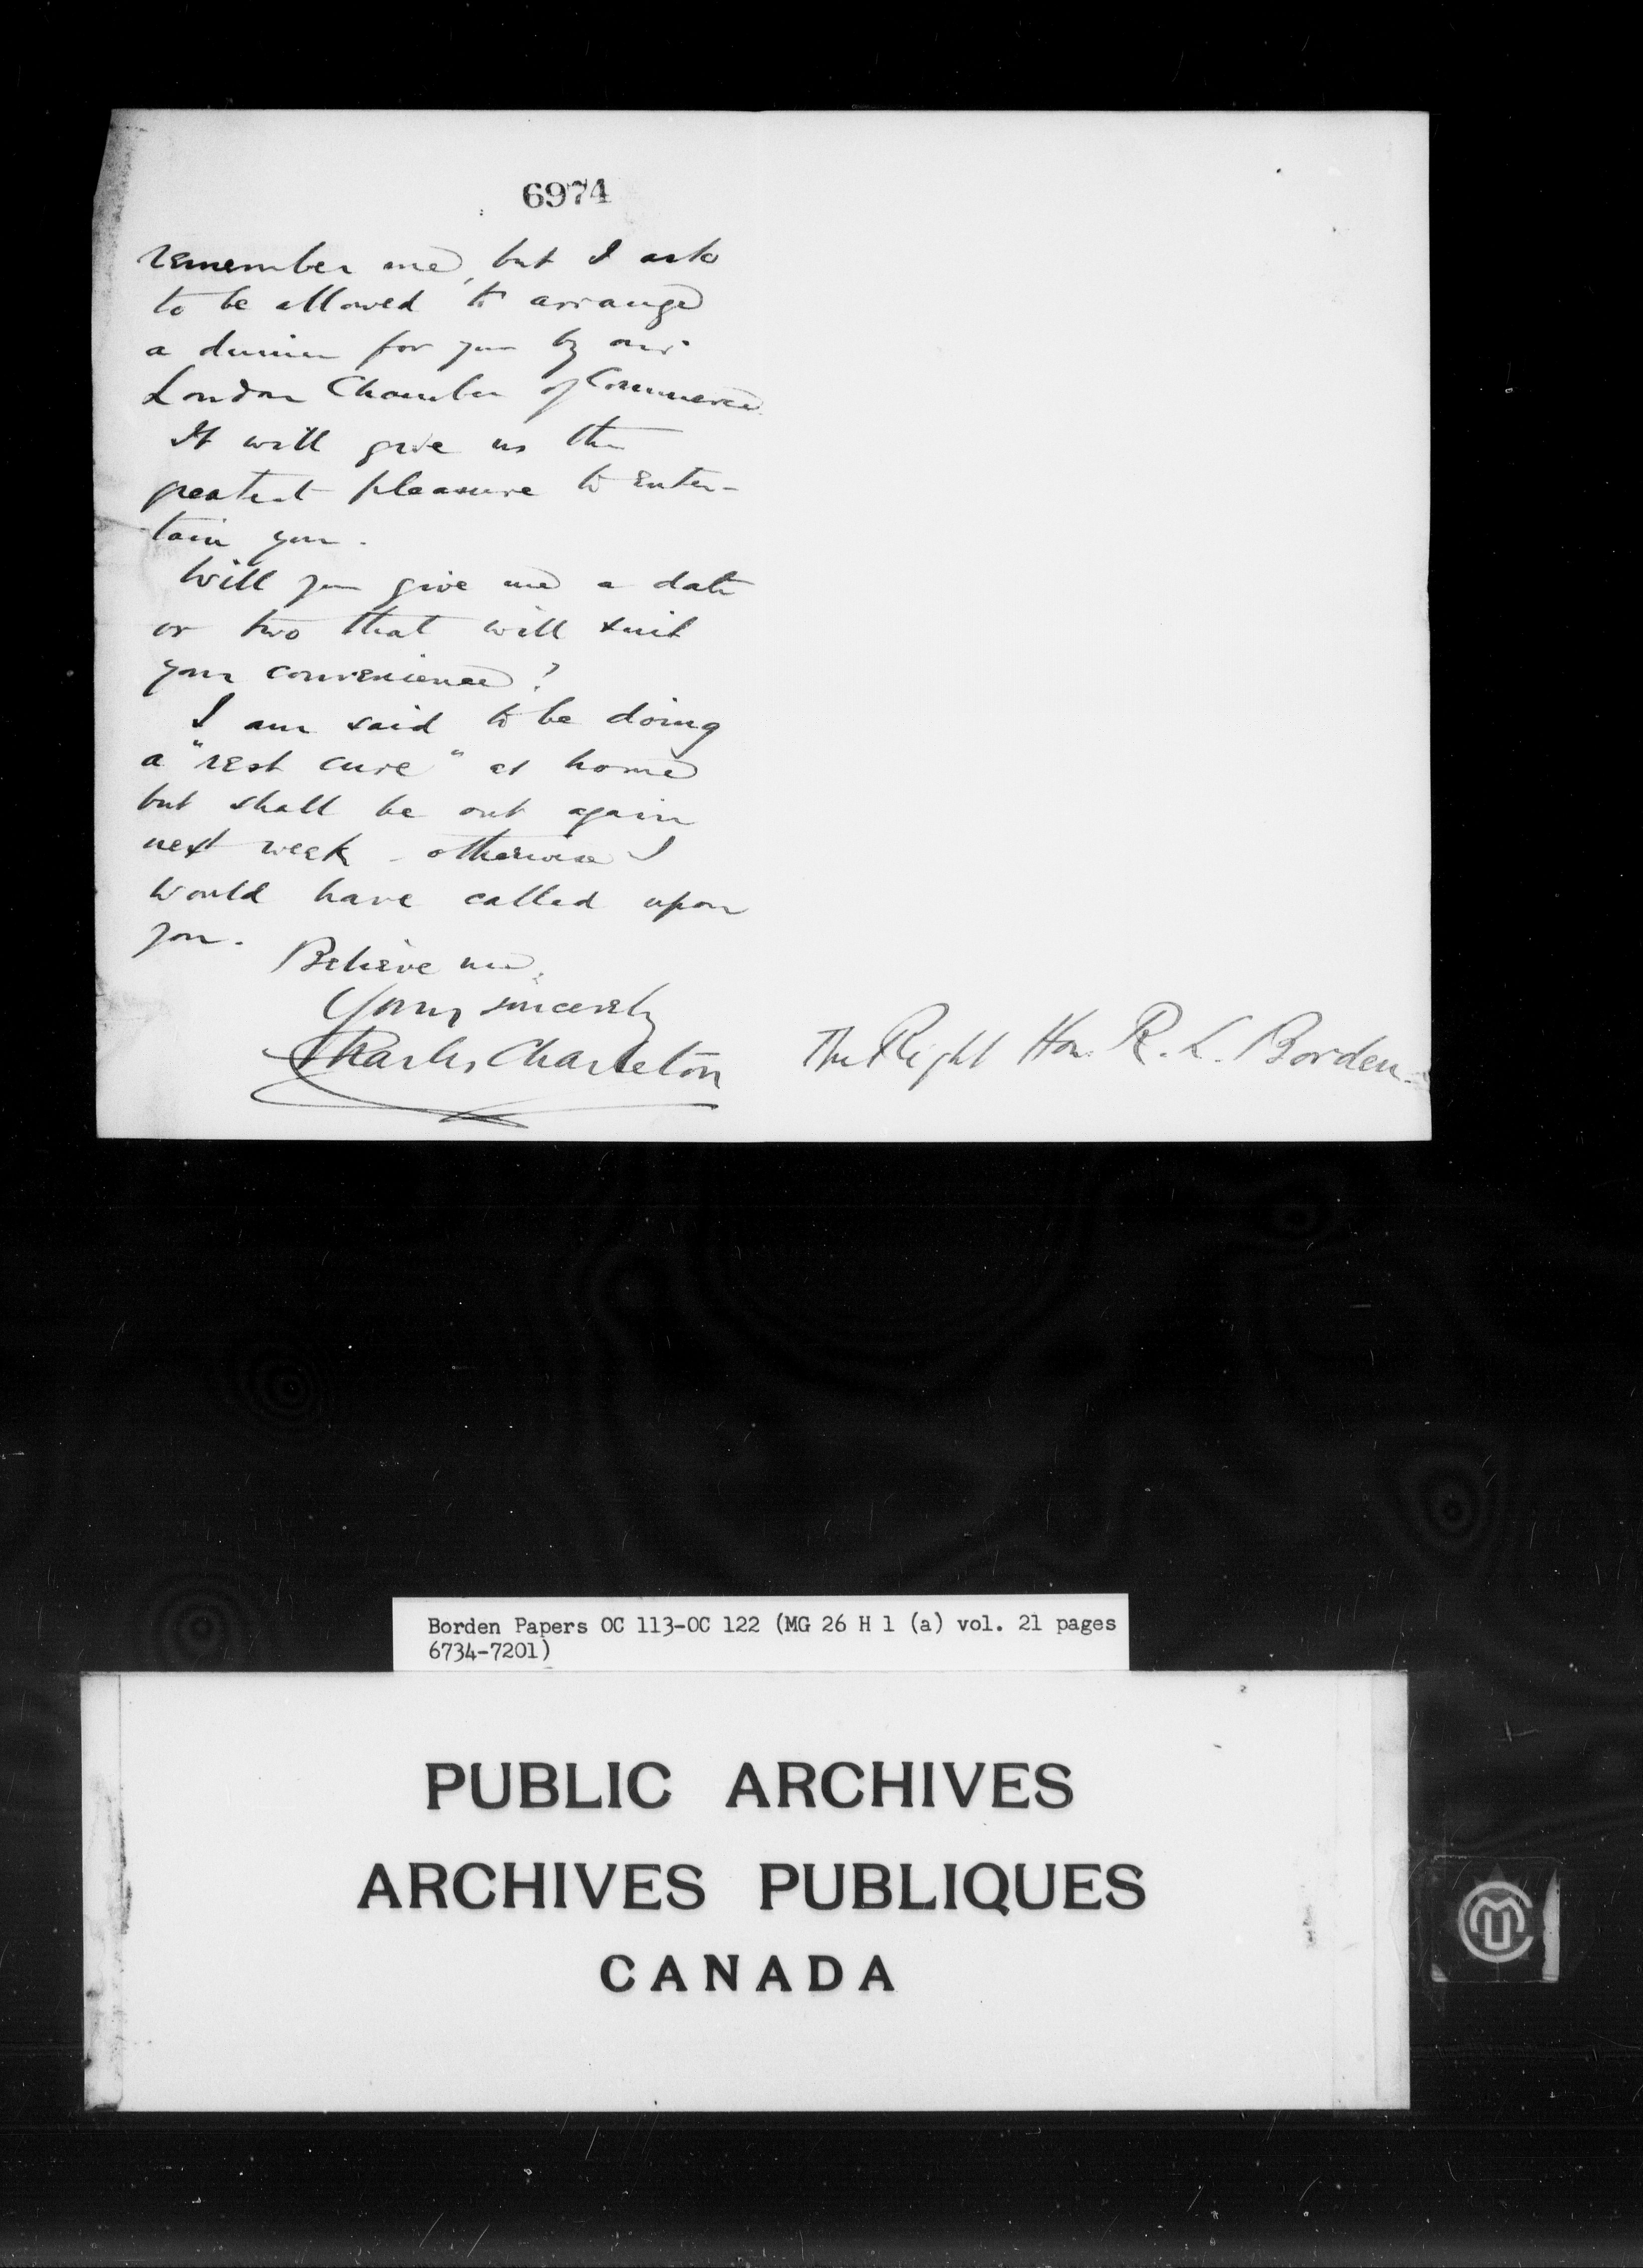 6974
remember me, but I ask
to be allowed to arrange
a dinner for you by our
London Chamber of Commerce.
It will give us the
greatest pleasure to enter-
tain you.
Will you give me a date
or two that will suit
your convenience?
I am said to be doing
a "rest cure" at home
but shall be out again
next week - otherwise I
would have called upon
you.
Believe me,
Yours sincerely
Charles Charleton
The Right Hon. R. L. Borden.
Borden Papers OC 113-OC 122 (MG 26 H 1 (a) vol. 21 pages
6734-7201)
PUBLIC ARCHIVES
ARCHIVES PUBLIQUES
CANADA